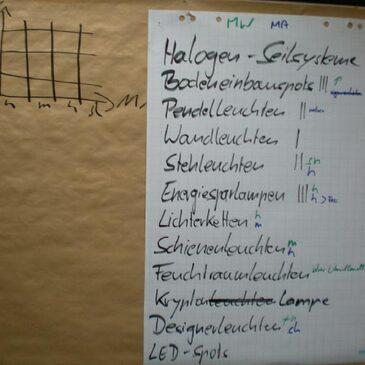 MW MA
Halogen - Seilsysteme
Bodeneinbauspots |||
Pendelleuchten ||
Wandleuchten |
Stehleuchten || h
Energiesparlampen ||| h
Lichterketten h m
Schienenleuchten m h
Feuchtraumleuchten
Krypton Lampe
Designerleuchten ch
LED-Spots
h m h